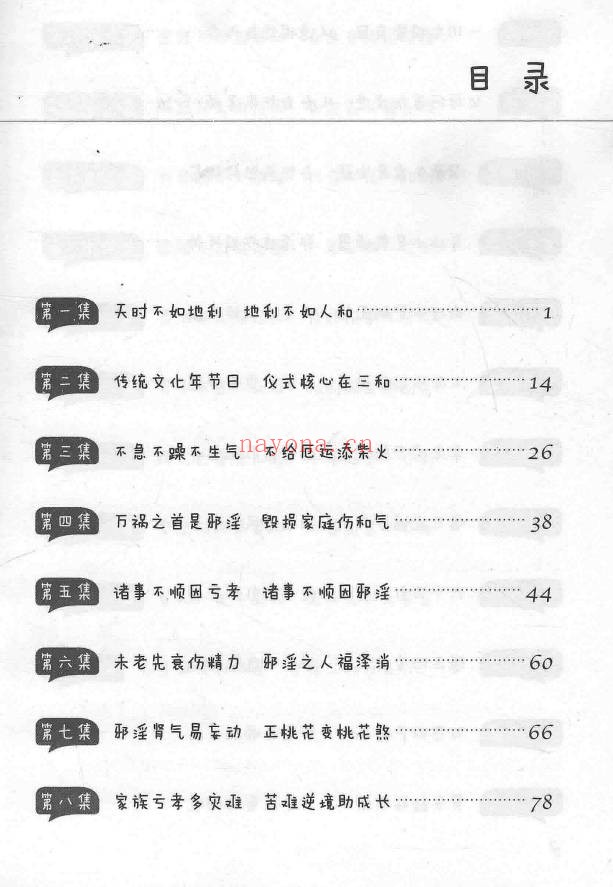 目 录
第一集 天时不如地利 地利不如人和 1
第二集 传统文化年节日 仪式核心在三和 14
第三集 不急不躁不生气 不给厄运添柴火 26
nayona.cn
第四集 万祸之首是邪淫 毁损家庭伤和气 38
第五集 诸事不顺因亏孝 诸事不顺因邪淫 44
第六集 未老先衰伤精力 邪淫之人福泽消 60
第七集 邪淫肾气易妄动 正桃花变桃花煞 66
第八集 家族亏孝多灾难 苦难逆境助成长 78